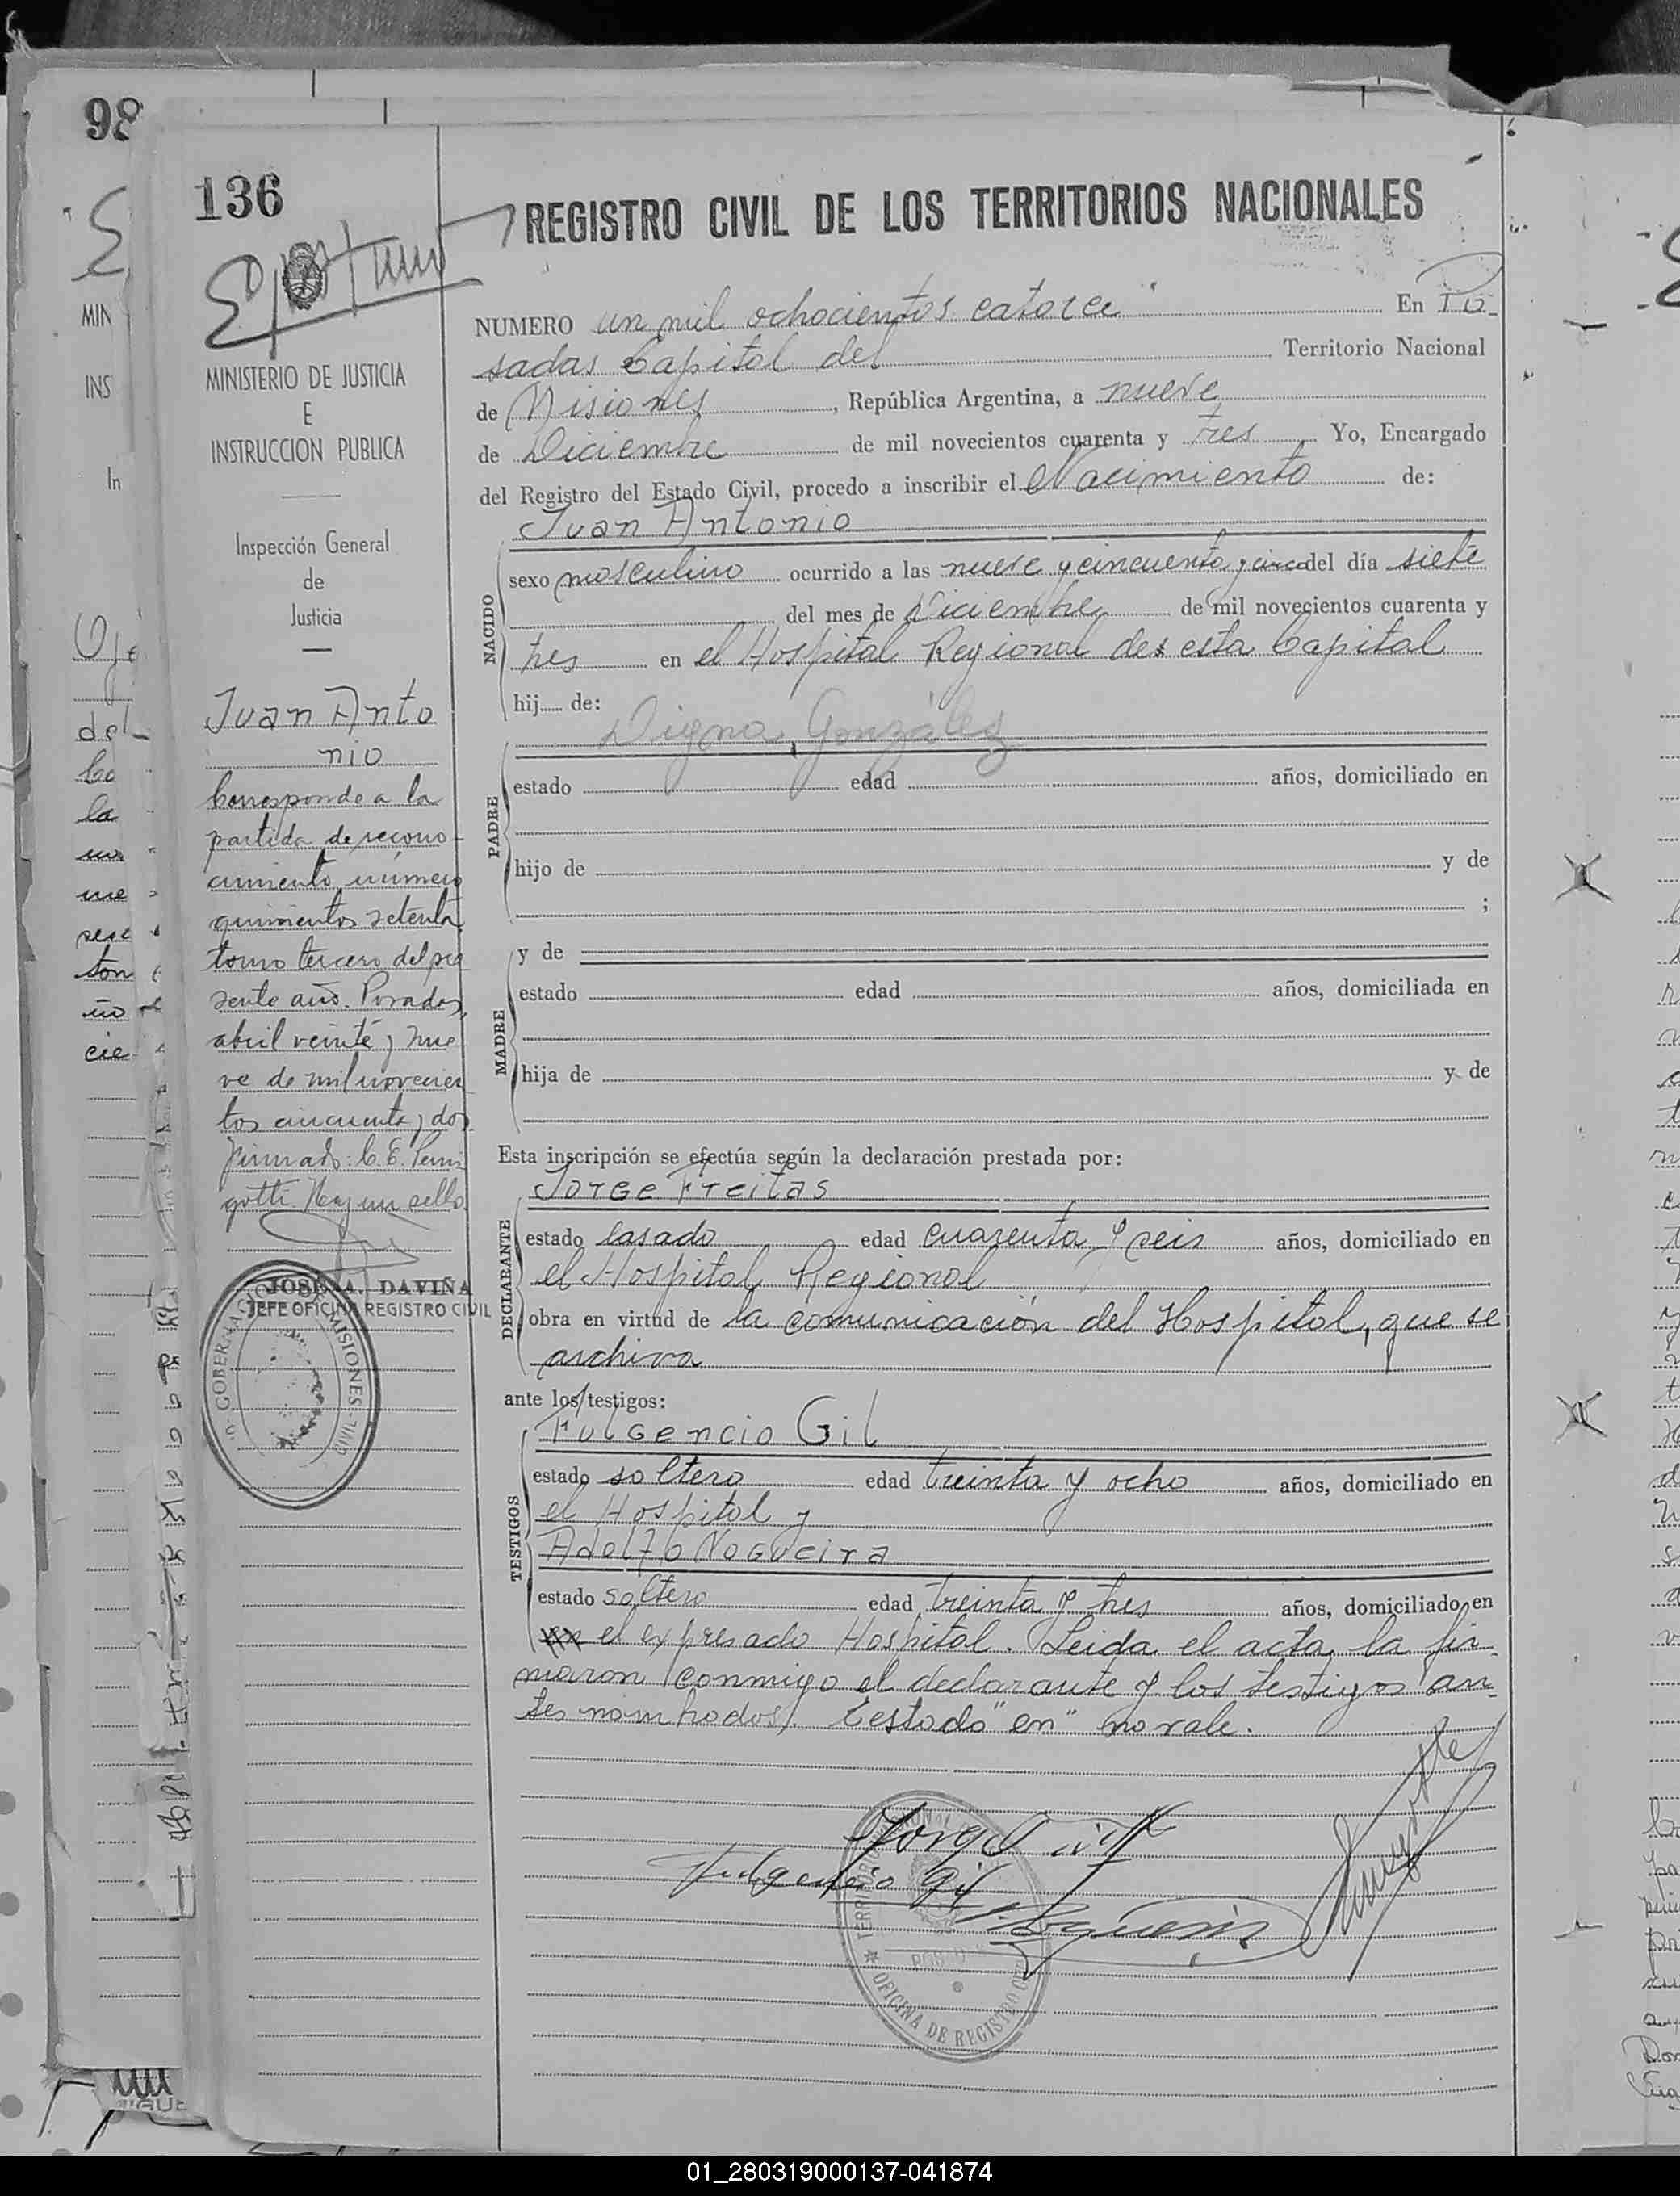 98
136
REGISTRO CIVIL DE LOS TERRITORIOS NACIONALES
NUMERO un mil ochocientos catorce En Po-
sadas Capital del Territorio Nacional
de Misiones, República Argentina, a nueve
de Diciembre de mil novecientos cuarenta y tres Yo, Encargado
del Registro del Estado Civil, procedo a inscribir el Nacimiento de:
Juan Antonio
NACIDO
sexo masculino ocurrido a las nueve y cincuenta y cinco del día siete
del mes de Diciembre de mil novecientos cuarenta y
tres en el Hospital Regional de esta Capital
hij de:
Digna González
PADRE
estado edad años, domiciliado en
hijo de y de
;
y de
MADRE
estado edad años, domiciliada en
hija de y de
Esta inscripción se efectúa según la declaración prestada por:
Jorge Freitas
DECLARANTE
estado casado edad cuarenta y seis años, domiciliado en
el Hospital Regional
obra en virtud de la comunicación del Hospital, que se
archiva
ante los testigos:
Fulgencio Gil
TESTIGOS
estado soltero edad treinta y ocho años, domiciliado en
el Hospital y
Adolfo Nogueira
estado soltero edad treinta y tres años, domiciliado en
en el expresado Hospital. Leida el acta, la fir-
maron conmigo el declarante y los testigos an-
tes nombrados. Testado "en" no vale.
Fulgencio Gil
TERRITORIO
OFICINA DE REGISTRO
MINISTERIO DE JUSTICIA
E
INSTRUCCION PUBLICA
Inspección General
de
Justicia
Juan Anto
nio
Corresponde a la
partida de recono-
cimiento número
quinientos setenta
tomo tercero del pre
sente año. Posadas,
abril veinte y nue
ve de mil novecien
tos cincuenta y dos
Firmado: C. E. Perni
gotti. Hay un sello.
JOSE A. DAVIÑA
JEFE OFICINA REGISTRO CIVIL
GOBERNACION MISIONES
MIN
INS
In
01_280319000137-041874